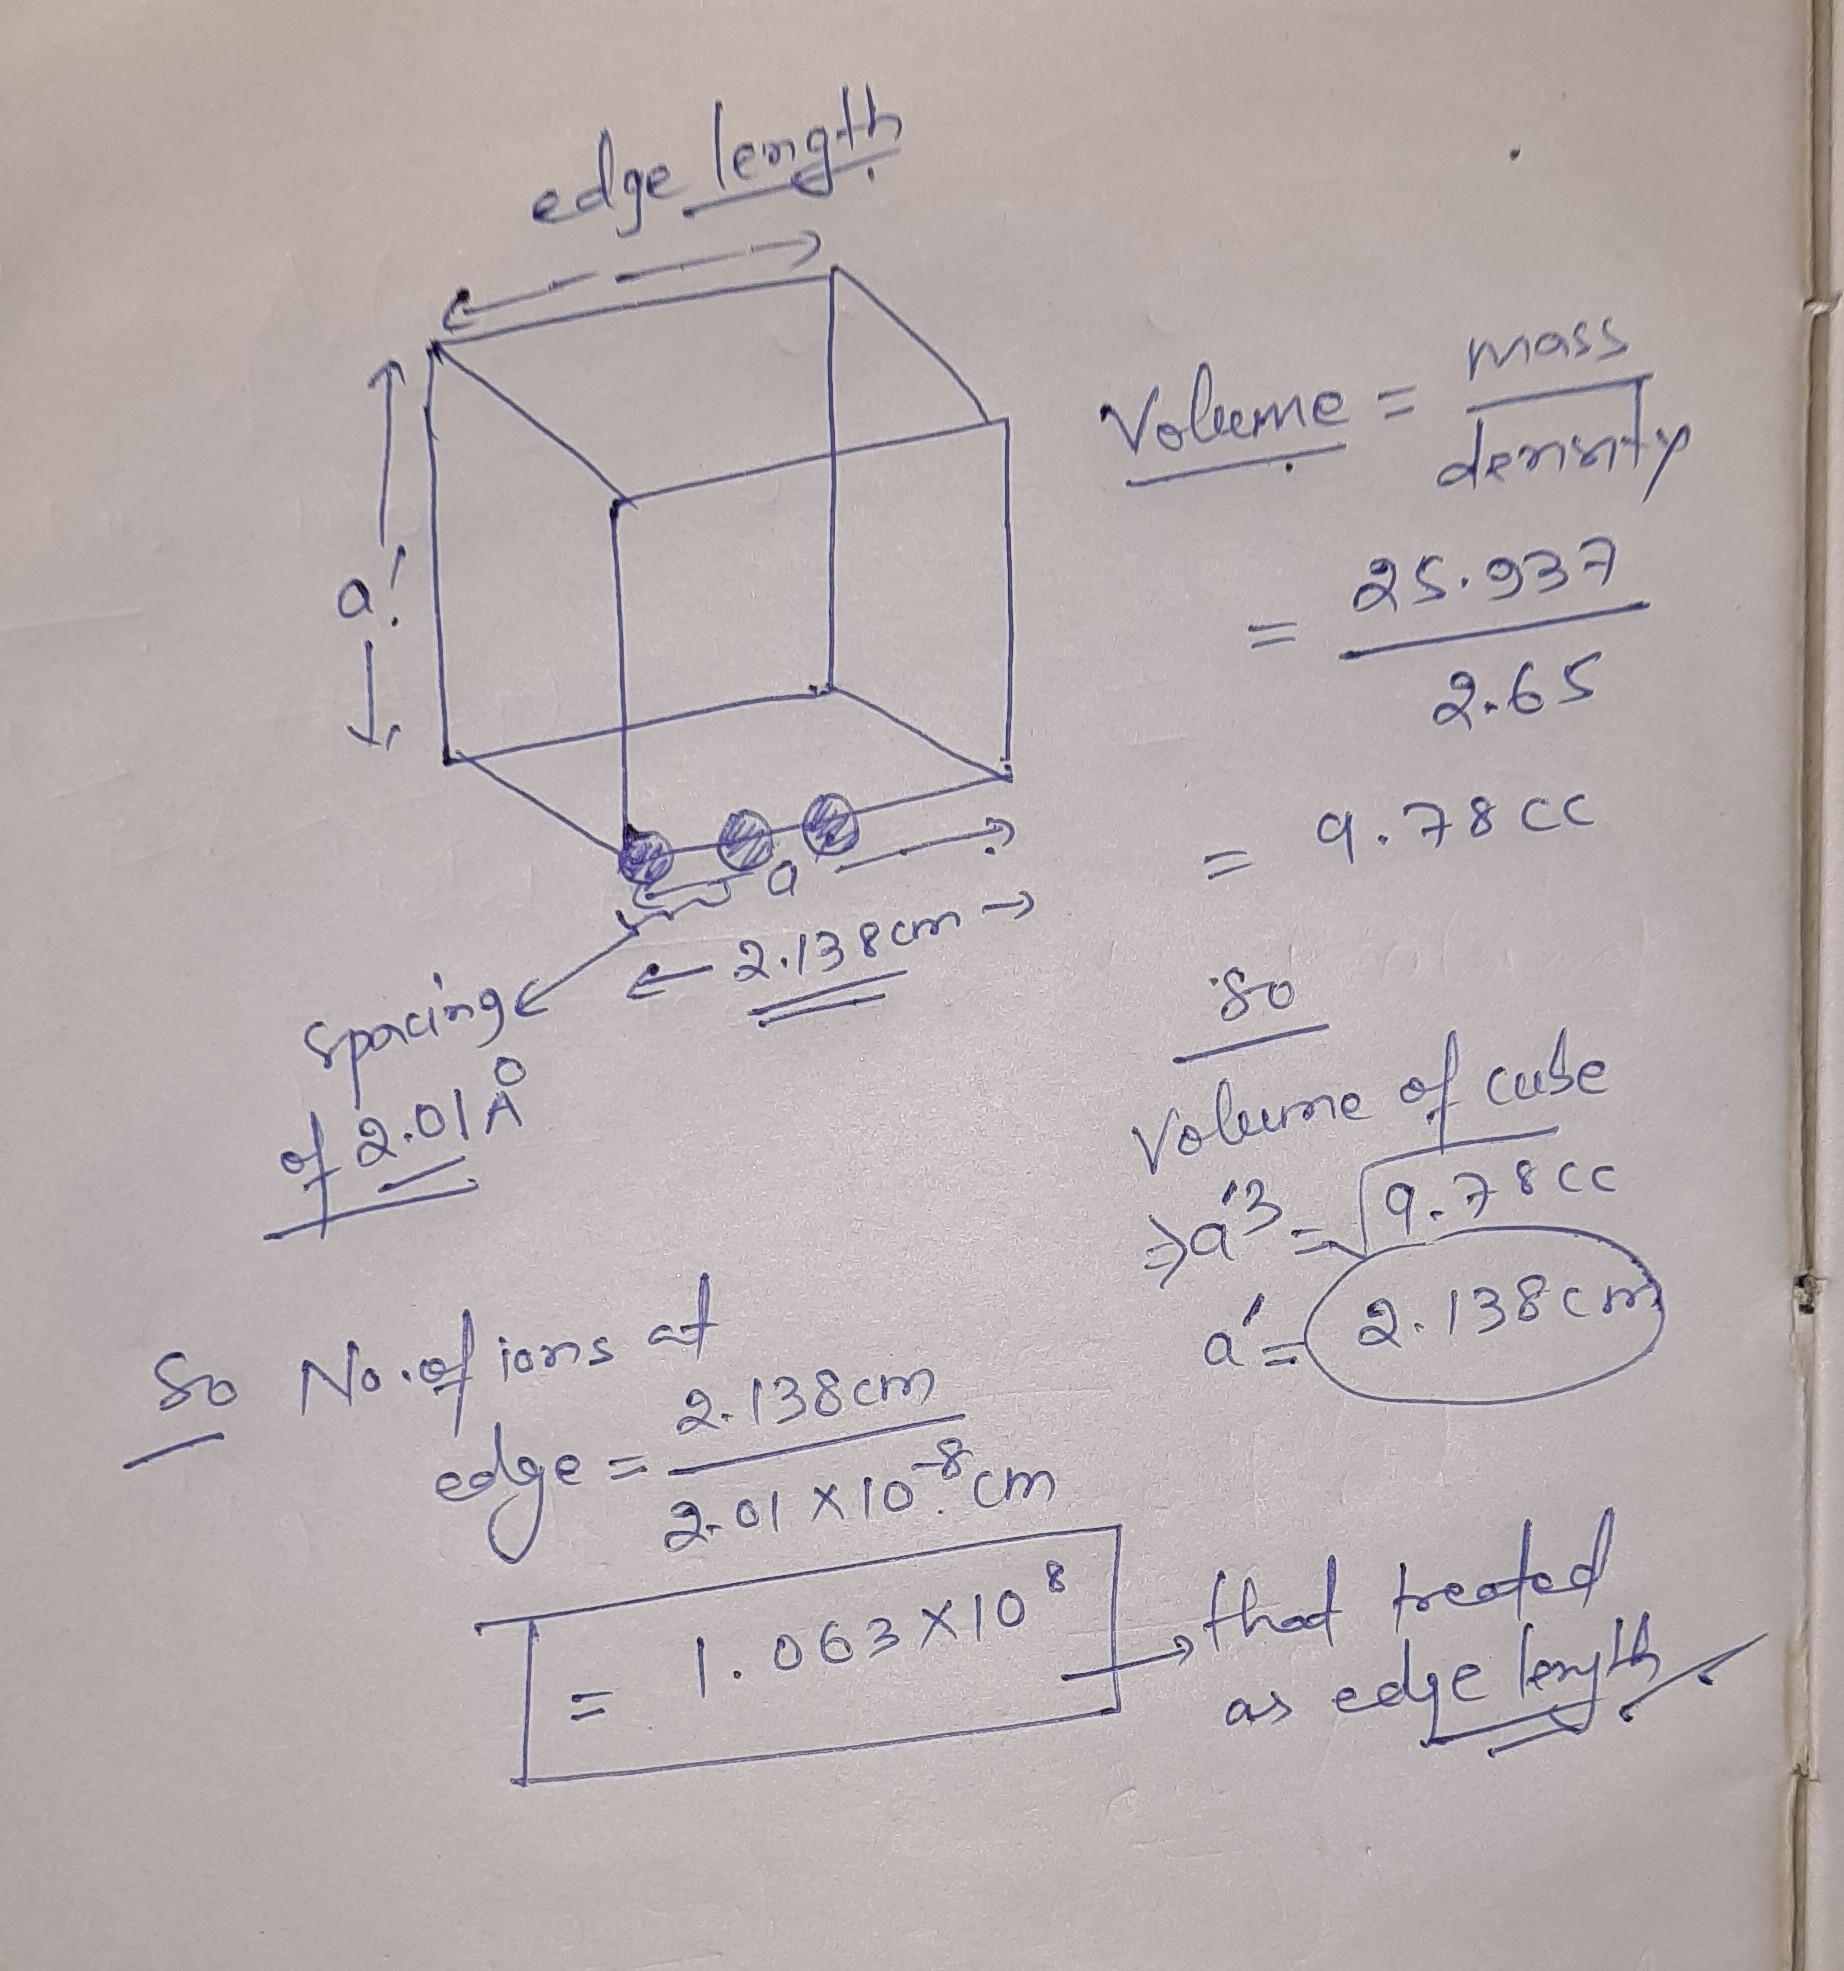 edge length
a'
a
← 2.138cm →
spacing
of 2.01Å
Volume = mass / density
= 25.937 / 2.65
= 9.78 cc
So
Volume of cube
⇒ a'3 = √9.78cc
a' = 2.138cm
So No. of ions at
edge = 2.138cm / 2.01 × 10-8 cm
= 1.063 × 10 8 → that treated
as edge length